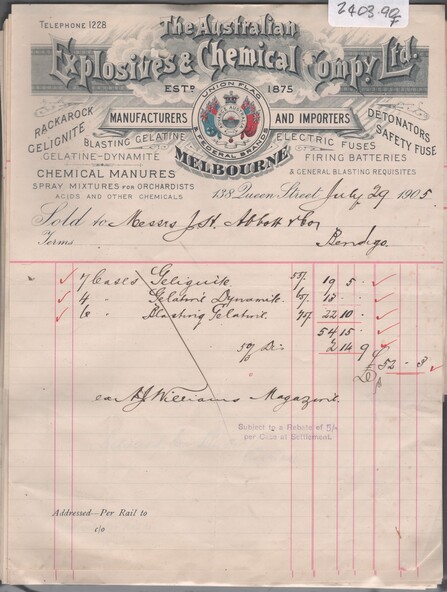 2403.99
TELEPHONE 1228
The Australian
Explosives & Chemical Compy. Ltd.
ESTD 1875
UNION FLAG
FEDERAL BRAND
MANUFACTURERS AND IMPORTERS
MELBOURNE
RACKAROCK
GELIGNITE
BLASTING GELATINE
GELATINE-DYNAMITE
CHEMICAL MANURES
SPRAY MIXTURES FOR ORCHARDISTS
ACIDS AND OTHER CHEMICALS
DETONATORS
SAFETY FUSE
ELECTRIC FUSES
FIRING BATTERIES
& GENERAL BLASTING REQUISITES
138 Queen Street, July 29 1905
Sold to Messrs J. H. Abbott & Co
Terms Bendigo.
7 Cases Geliguite 55/- 19 5 -
4 " Gelatine Dynamite 65/- 13 - -
6 " Blasting Gelatine 75/- 22 10 -
54 15 -
5% Dis 2 14 9
£ 52 - 3
Williams Magazine
Subject to a Rebate of 5/-
per Case at Settlement.
Addressed—Per Rail to
c/o